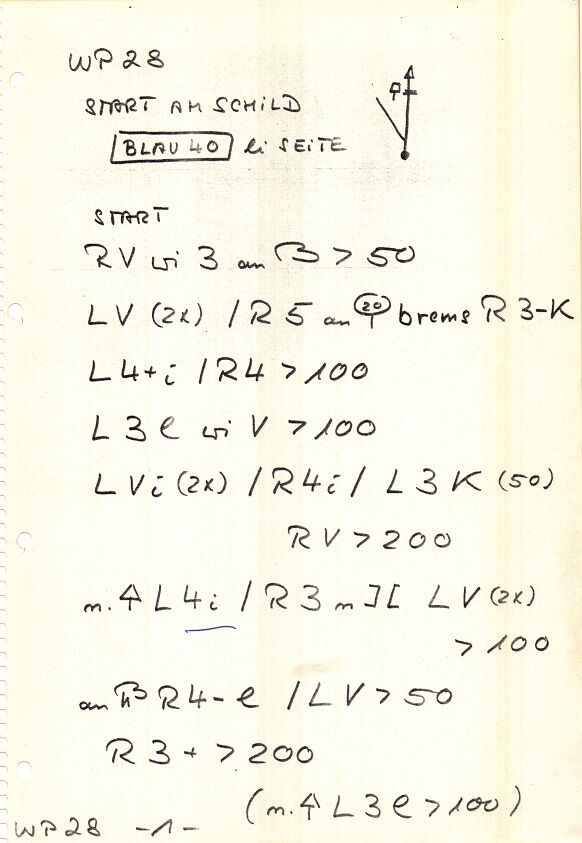 WP 28
START AM SCHILD
BLAU 40 li SEITE
START
RV wi 3 an > 50
LV (2x) / R 5 an 20 brems R 3-K
L 4+i / R4 > 100
L 3 l wi V > 100
L Vi (2x) / R4i / L 3 K (50)
RV > 200
n. ↑ L 4i / R 3 n ][ LV (2x)
> 100
an R4-l / LV > 50
R 3 + > 200
(n. ↑ L 3 l > 100)
WP 28 -1-